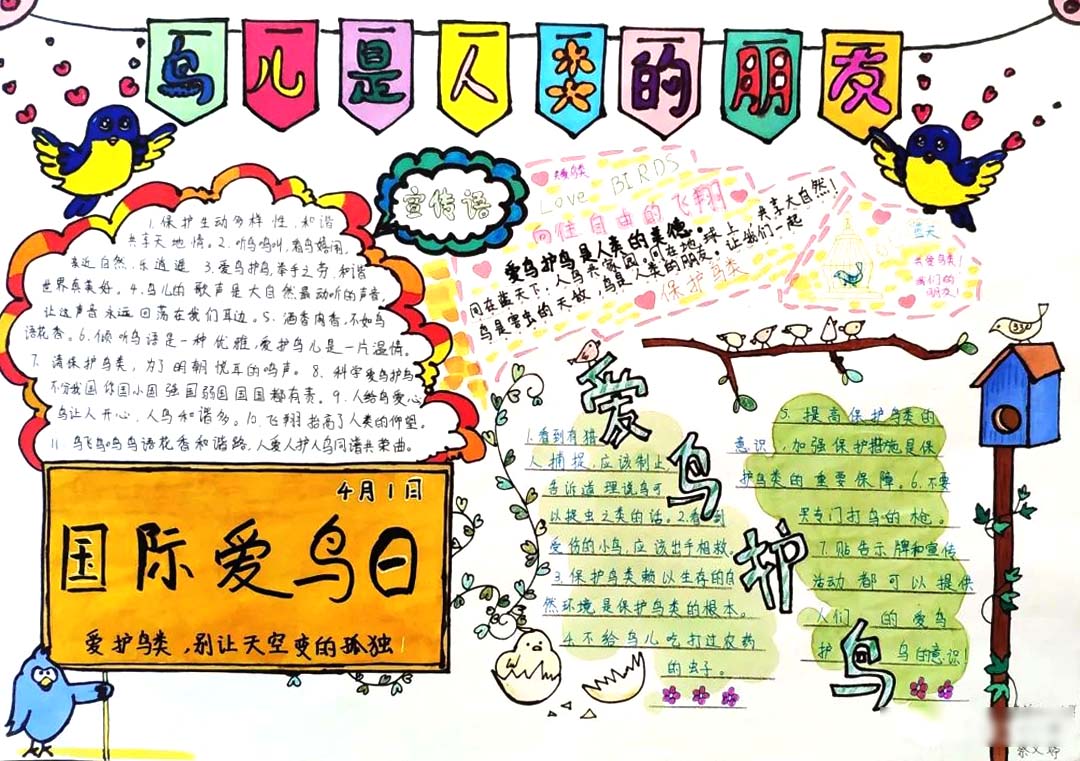 鸟儿是人类的朋友
1.保护生动多样性,和谐
共享天地情。2.听鸟鸣叫,看鸟嬉闹,
亲近自然,乐逍遥 3.爱鸟护鸟牵手之劳,和谐
世界真美好。4.鸟儿的歌声是大自然最动听的声音,
让这声音永远回荡在我们耳边。5.酒香肉香,不如鸟
语花香。6.倾听鸟语是一种优雅,爱护鸟儿是一片温情。
7.请保护鸟类,为了明朝悦耳的鸣声。8.科学爱鸟护鸟
不分我国你国小国强国弱国国国都有责。9.人给鸟爱心
鸟让人开心,人鸟和谐多。10.飞翔抬高了人类的仰望。
11.鸟飞鸟鸣鸟语花香和谐路,人爱人护人鸟同谱共荣曲。
宣传语
Love BIRDS
向往自由的飞翔
爱鸟护鸟是人类的美德。
同在蓝天下,人鸟共家园。同在地球上
共享大自然!
鸟是害虫的天敌,鸟是人类的朋友。让我们一起
保护鸟类
蓝天
共爱鸟类!
我们的
朋友!
4月1日
国际爱鸟日
爱护鸟类,别让天空变的孤独!
爱鸟护鸟
1.看到有猎
人捕捉,应该制止,
告诉道理说鸟可
以捉虫之类的话。2.看到
受伤的小鸟,应该出手相救。
3.保护鸟类赖以生存的自
然环境是保护鸟类的根本。
4.不给鸟儿吃打过农药
的虫子。
5.提高保护鸟类的
意识,加强保护措施是保
护鸟类的重要保障。6.不要
买专门打鸟的枪。
7.贴告示牌和宣传
活动都可以提供
人们的爱鸟
护鸟的意识!